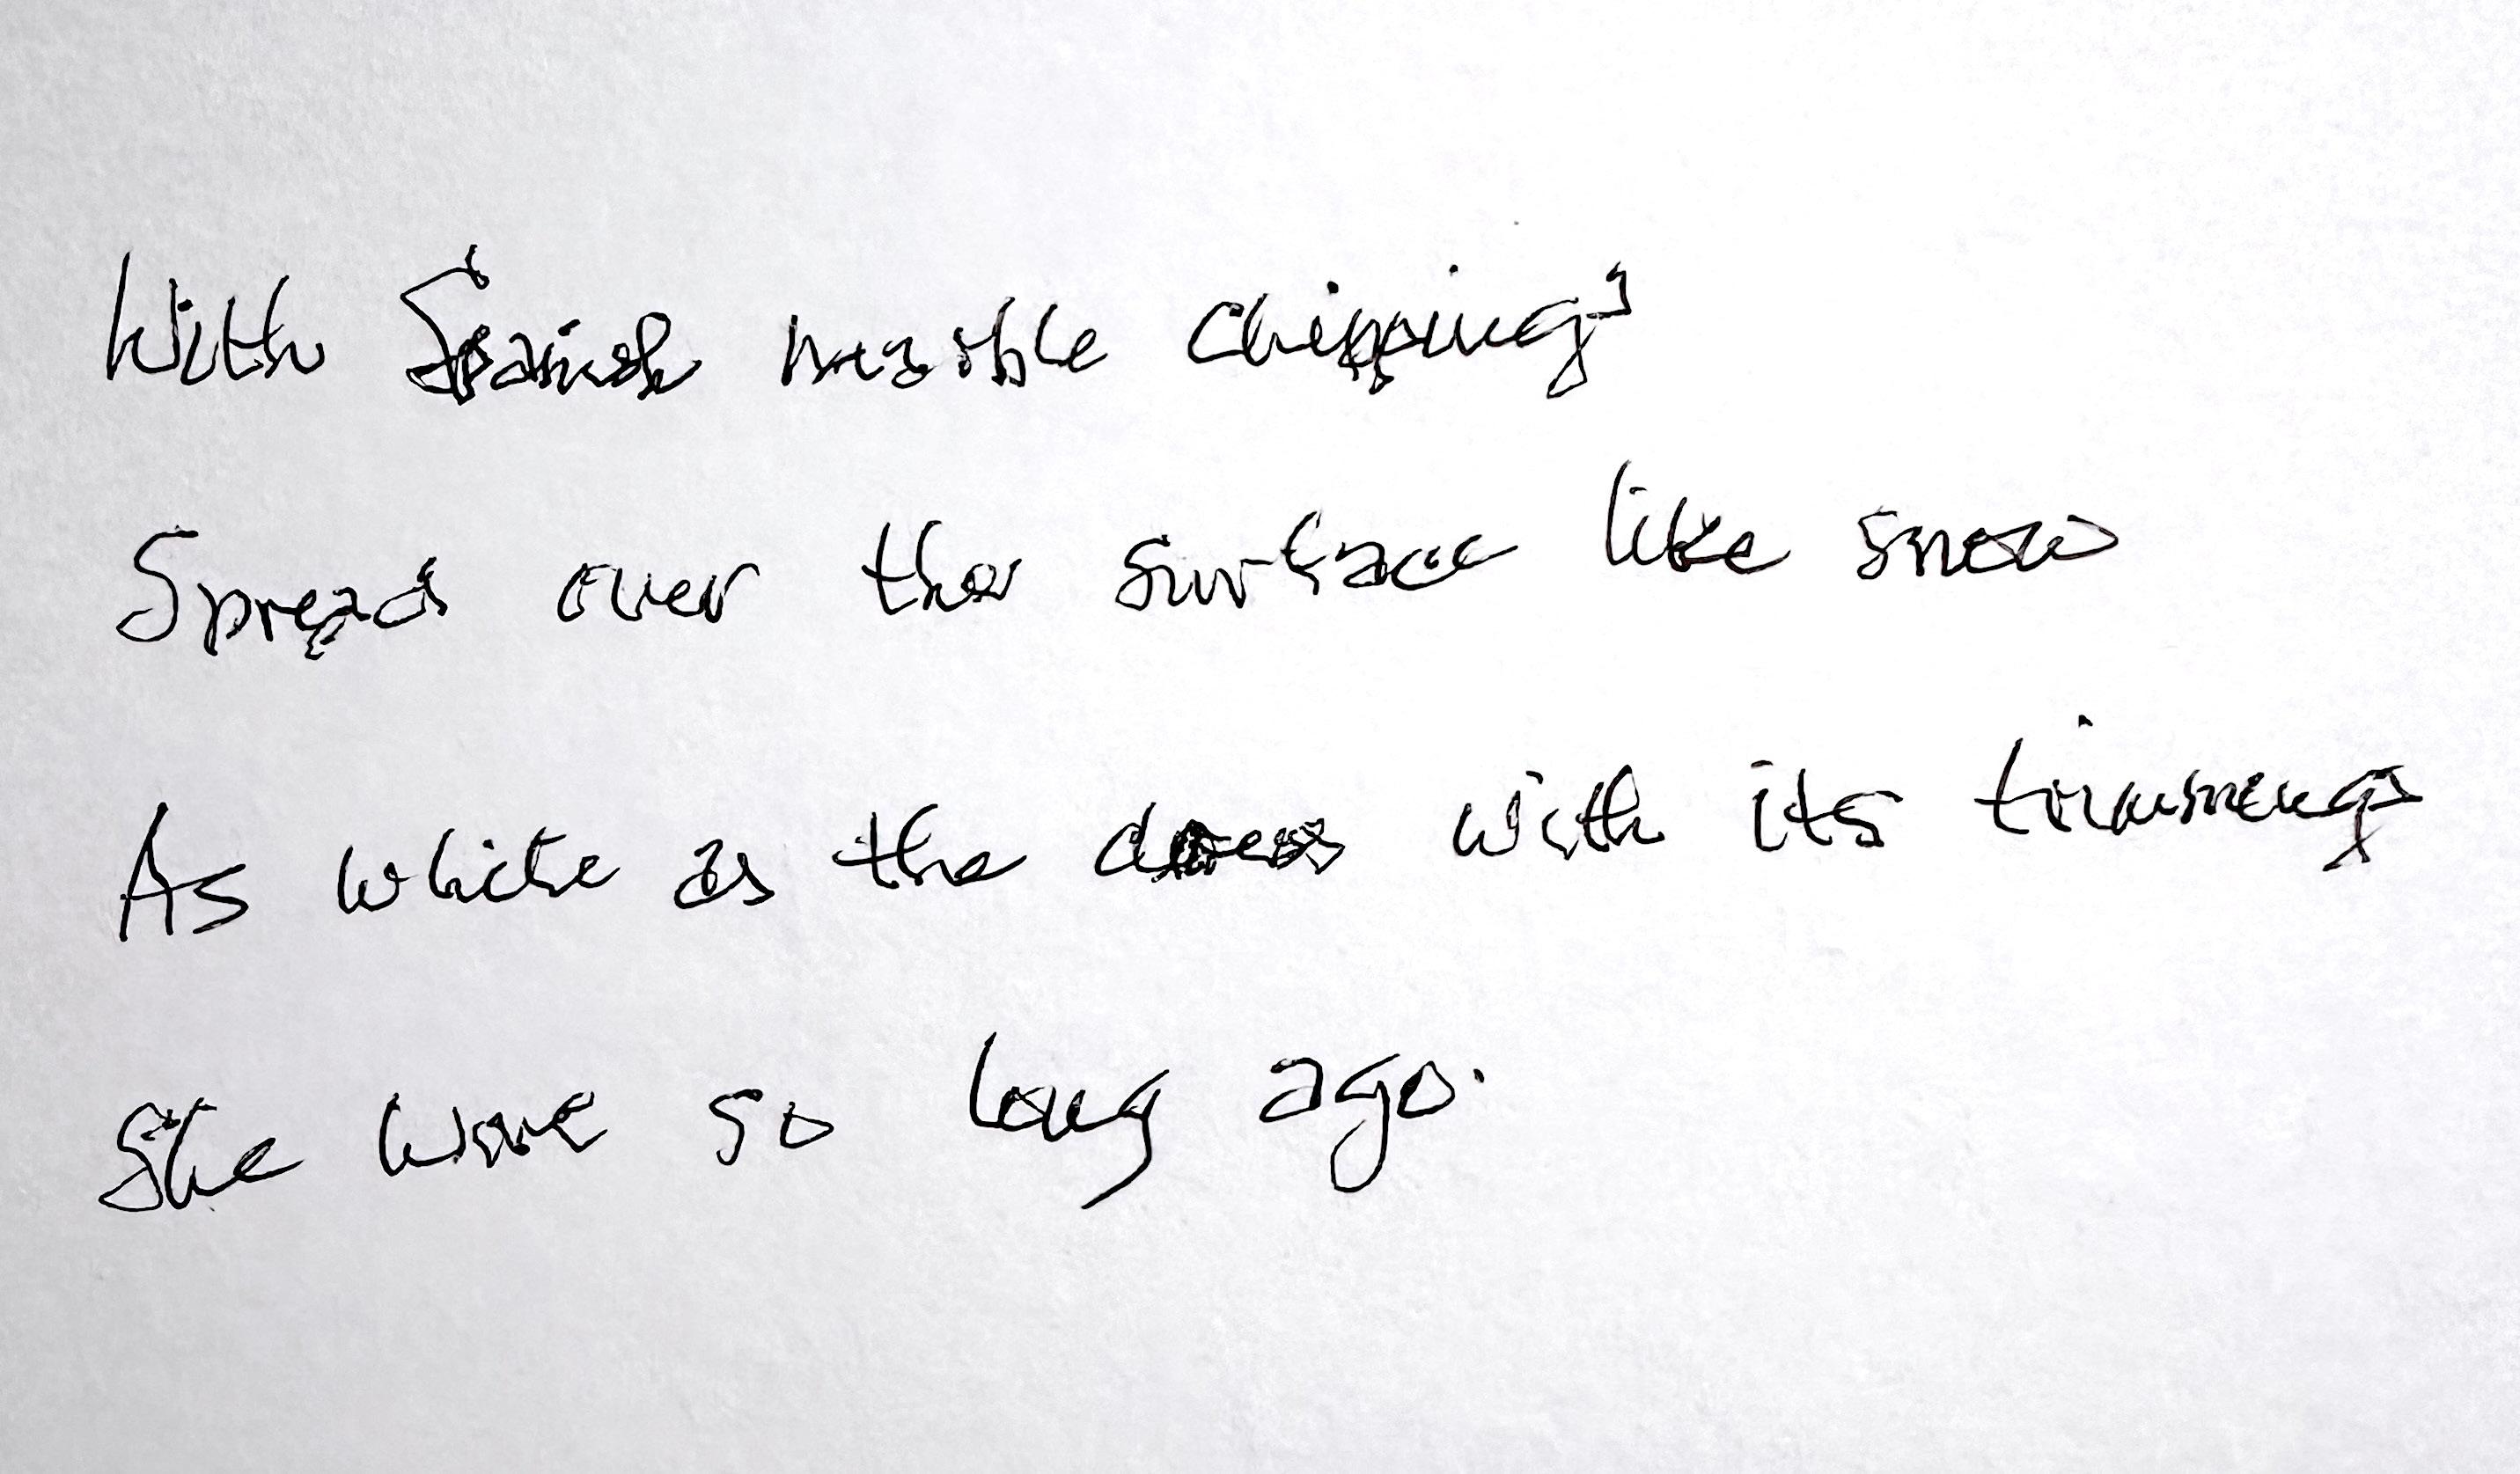 With Spanish marble chippings
Spread over the surface like snow
As white as the dress with its trimmings
She wore so long ago.